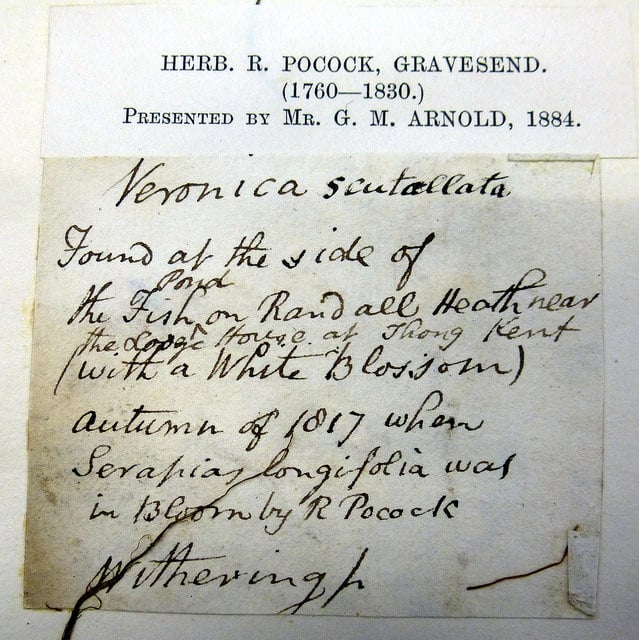 HERB. R. POCOCK, GRAVESEND.
(1760—1830.)
PRESENTED BY MR. G. M. ARNOLD, 1884.
Veronica scutallata
Found at the side of
the Fish ^ Pond on Randall Heath near
the Lodge House at Thong Kent
(with a White Blossom)
autumn of 1817 when
Serapias longifolia was
in Bloom by R Pocock